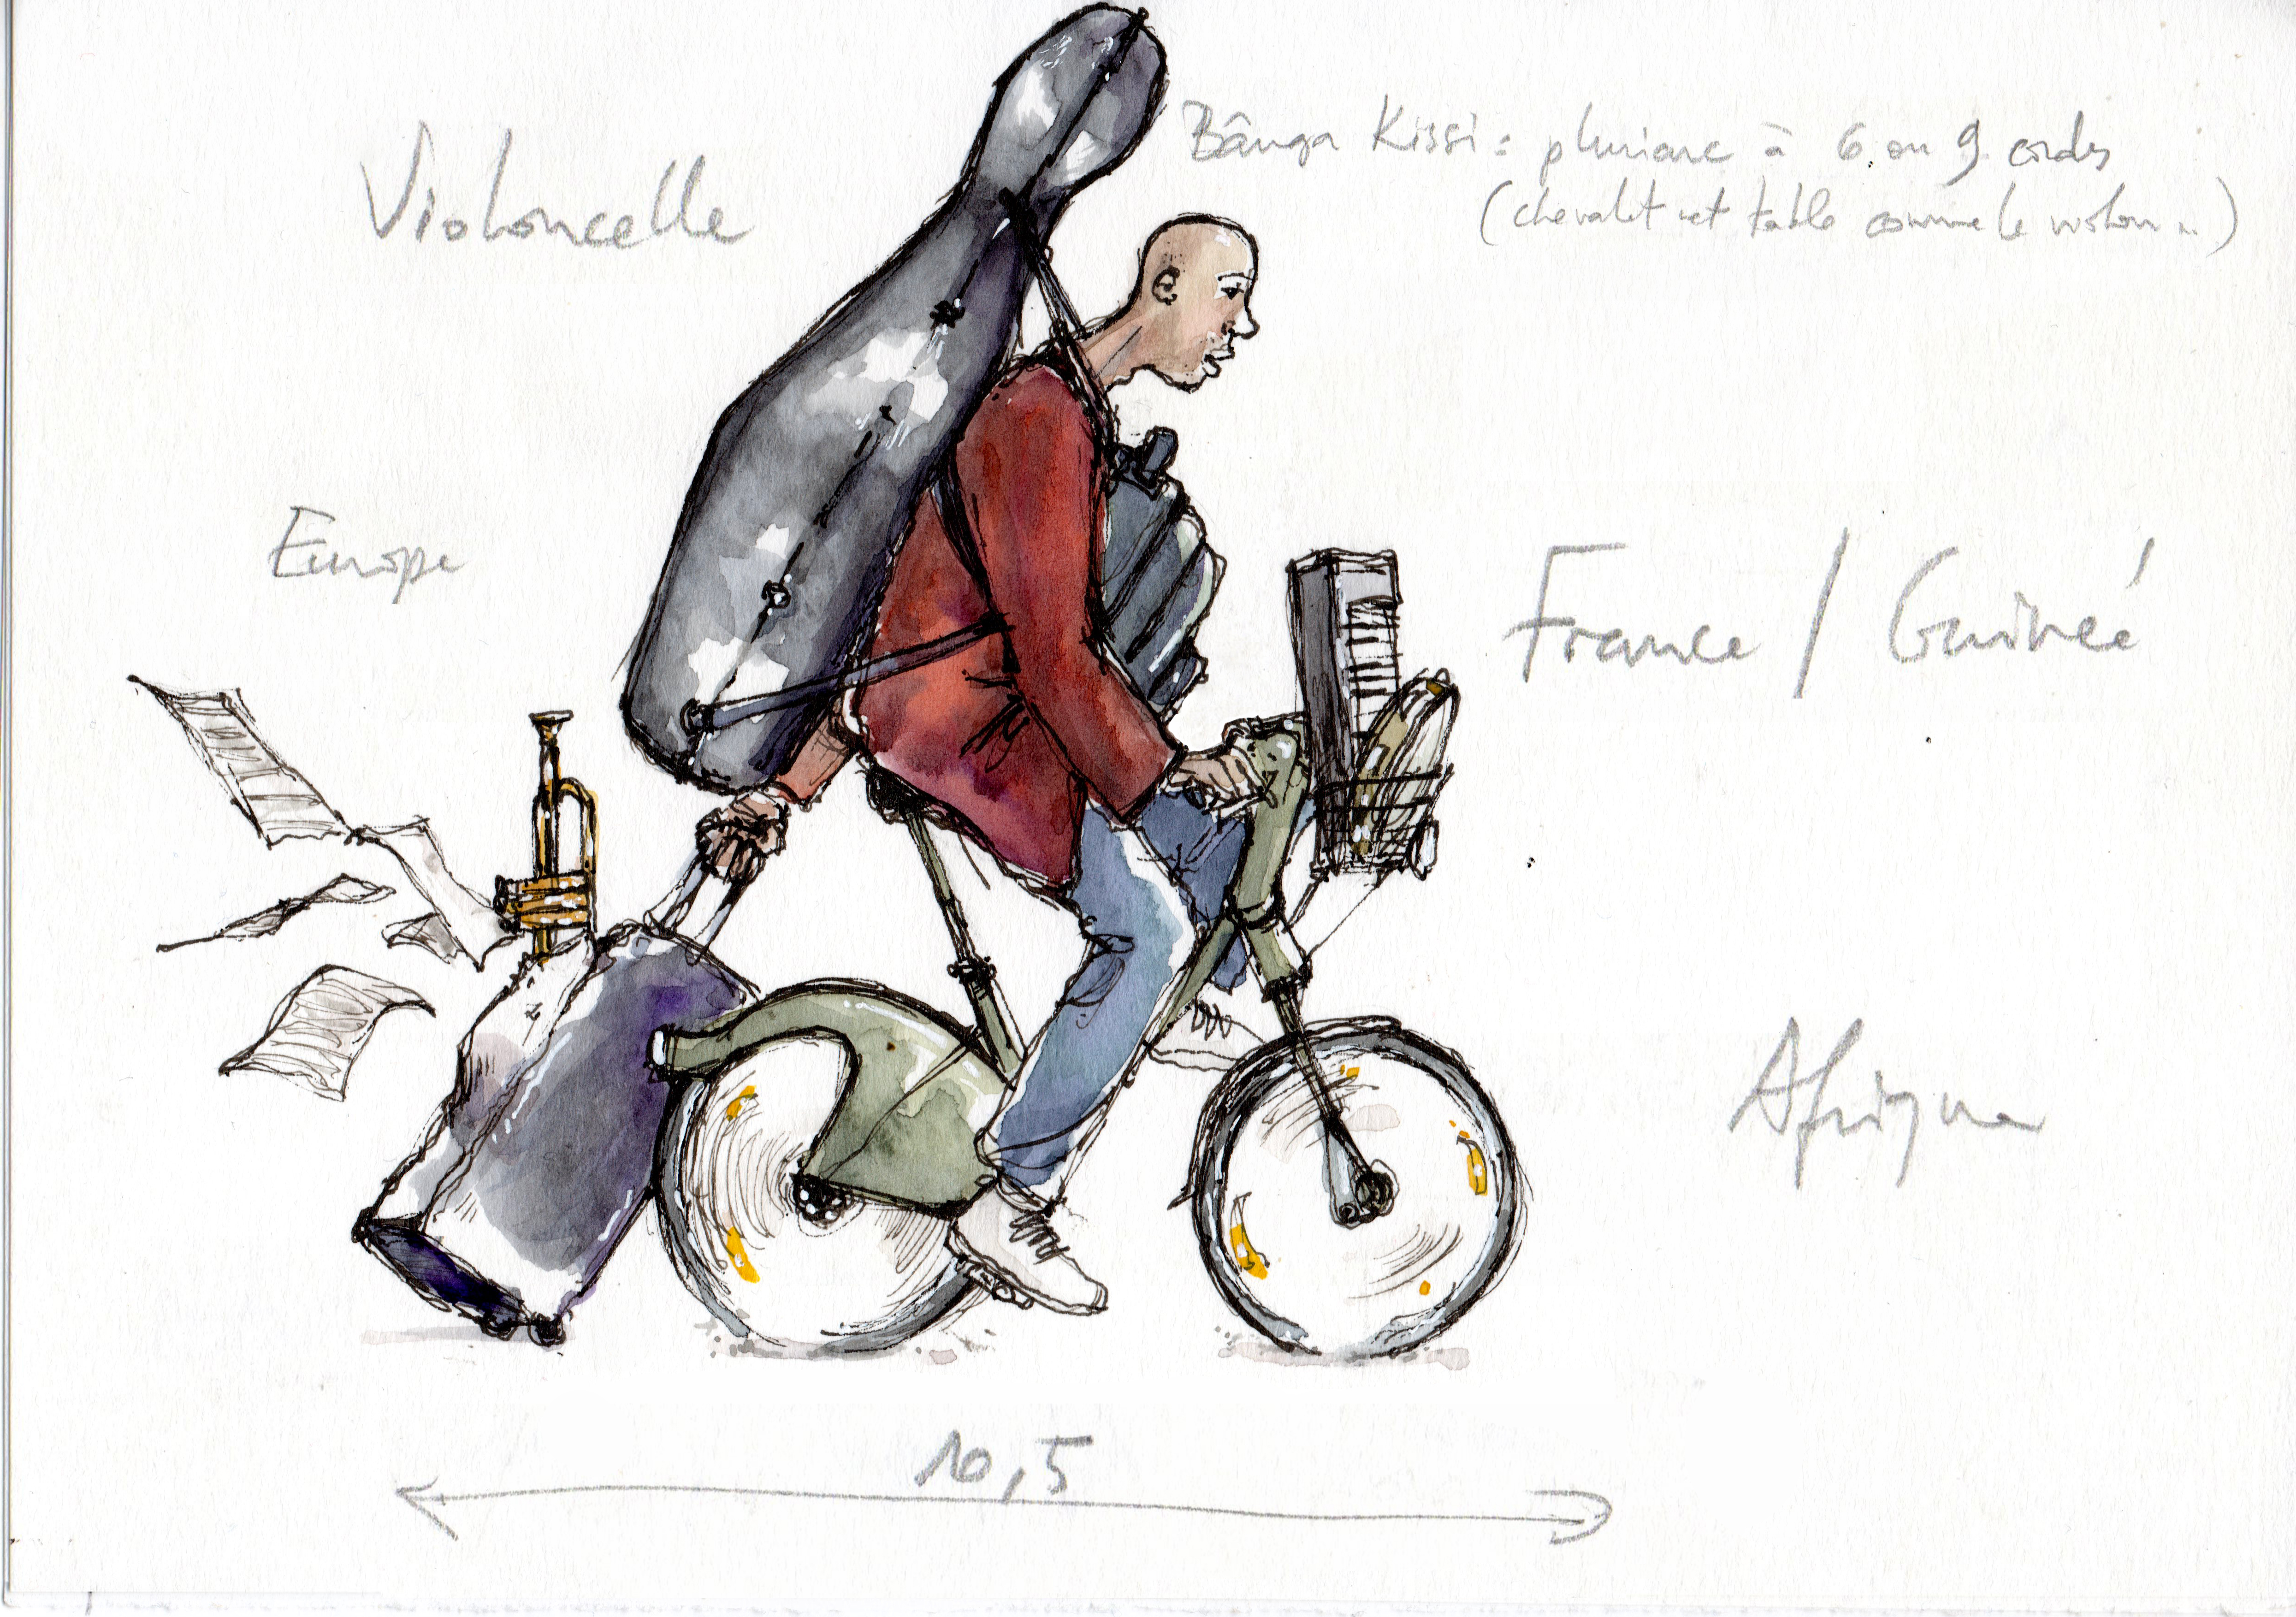 Violoncelle
Bânga Kissi : pluriarc à 6 ou 9 cordes
(chevalet et table comme le violon ...)
Europe
France / Guinée
Afrique
10,5